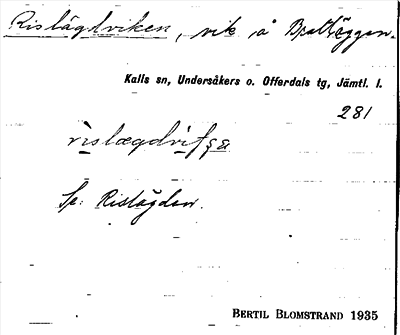 Rislägdviken, vik å Brattäggen.
Kalls sn, Undersåkers o. Offerdals tg, Jämtl. l.
281
Se: Rislägden.
BERTIL BLOMSTRAND 1935